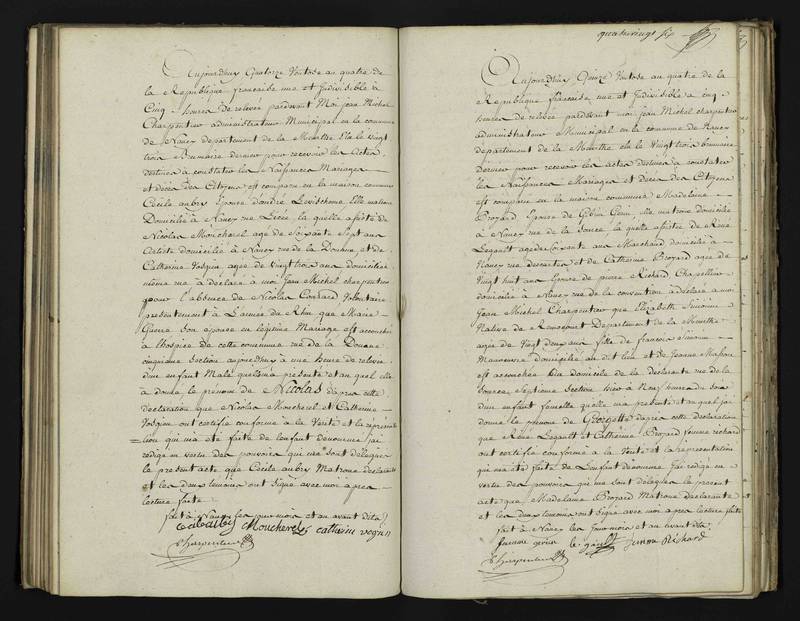 Aujourdhuy Quatorze Ventose an quatre de
la Republique française une et Indivisible à
Cinq heures de relevée pardevant Moi jean Michel
Charpentier administrateur Municipal en la commune
de Nancy departement de la Meurthe Elu le vingt
trois Brumaire dernier pour recevoir les Actes
destinés à constater les Naissances Mariages
et decès des Citoyens est comparu en la maison commune
Cécile aubry Epouse d'andré Levischeme Elle matrone
Domiciliée à Nancy rue Licée la quelle assisté de
Nicolas Moucherel agé de Soixante Sept ans
Artiste domicilié à Nancy rue de la Douane et de
Catherine Vosgien agée de vingt trois ans domiciliée
même rue à déclaré a moi Jean Michel charpentier
quen l'absence de Nicolas Conrard, Volontaire
presentement à L'armée du Rhin que Marie
Guerre Son epouse en legitime Mariage est accouchée
à l'hospice de cette commune rue de la Douane
cinquieme Section aujourdhuy à une heure de relevée
d'un enfant Male quelle m'a presenté et au quel elle
a donné le prénom de Nicolas d'apres cette
declaration que Nicolas Moucherel et Catherine
Vosgien ont certifié conforme à la Verité et la représenta
tion qui m'a été faite de l'enfant denommé j'ai
redigé en vertu des pouvoirs qui me sont delegués
le present acte que Cécile aubry Matrone declarante
et les deux temoins ont Signé avec moi apres
lecture faite
fait à Nancy les jour mois et an avant dits
Moucherel catherin vogien
Charpentier
quatrevingt six
Aujourdhuy Quinze Ventose an quatre de la
Republique française une et Indivisible à cinq
heures de relevée pardevant moi jean Michel charpentier
administrateur Municipal en la commune de Nancy
departement de la Meurthe élu le Vingt trois brumaire
dernier pour recevoir les actes destinés à constater
les Naissances Mariages et Decès des Citoyens
est comparu en la maison commune Madelaine
Brozard Epouse de Gerin elle matrone domiciliée
à Nancy rue de la Source la quelle assistée de René
Legault agé de Soixante ans Marchand domicilié à
Nancy rue descartes et de Catherine Brozard agée de
Vingt huit ans Epouse de pierre Richard Chapellier
domiciliée à Nancy rue de la convention a déclaré a moi
Jean Michel Charpentier que Elizabeth Simonin
Native de Departement de la Meurthe
agée de Vingt deux ans fille de francois Simonin
Manoeuvre domicilié au dit lieu et de Jeanne
est accouchée au domicile de la declarante rue de la
Source, Septieme Section hier à Neuf heures du Soir
d'un enfant femelle quelle m'a presenté et au quel j'ai
donné le prenom de Georgette d'après cette declaration
que René Legault et Catherine Brozard femme richard
ont certifié conforme à la Verité et la representation
qui m'a été faite de l'enfant denommé j'ai redigé en
vertu des pouvoirs qui me sont delegués le present
acte que Madelaine Brozard Matrone declarante
et les deux temoins ont Signé avec moi apres lecture faite
fait à Nancy les jour mois et an avant dits
femme gerin le gault femme Richard
Charpentier